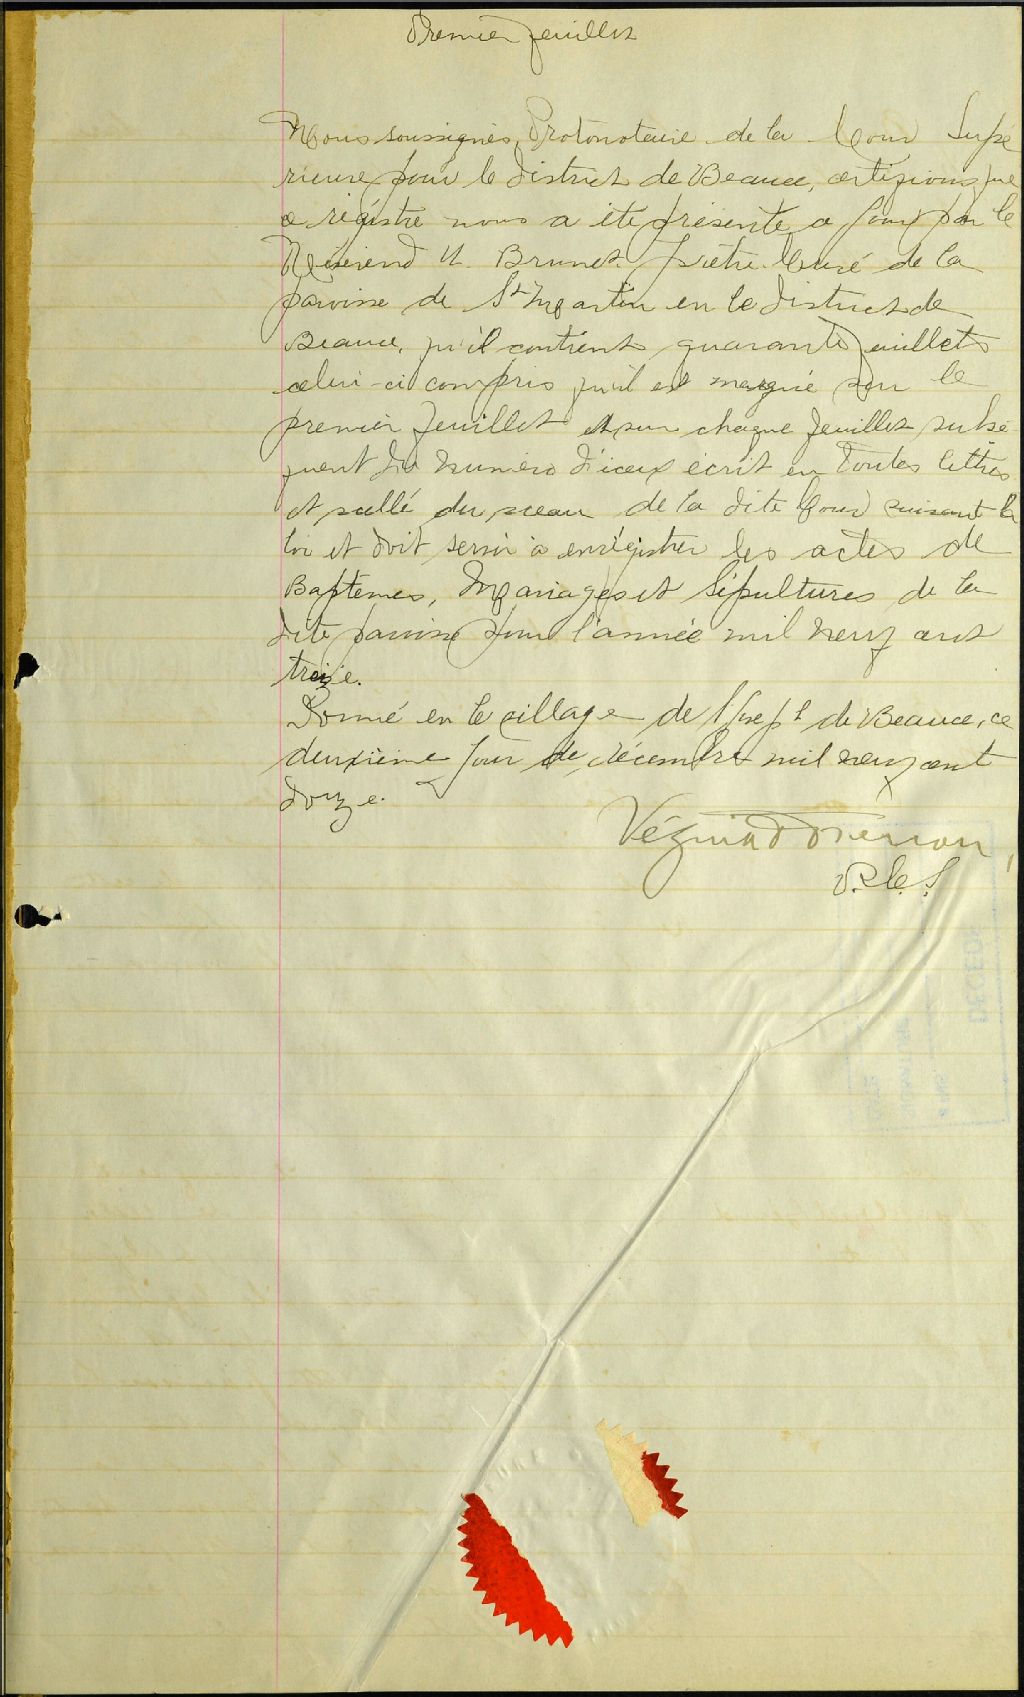 Premier feuillet
Nous soussignés, Protonotaire de la Cour Supé
rieure pour le district de Beauce, certifions que
ce régistre nous a été présenté ce jour par le
Révérend U. Brunet prêtre Curé de la
paroisse de St Martin en le district de
Beauce, qu'il contient quarante feuillets
celui-ci compris qu'il est marqué sur le
premier feuillet et sur chaque feuillet subsé
quent du numéro d'iceux écrit en toutes lettres
et scellé du sceau de la dite Cour suivant la
loi et doit servir à enrégistrer les actes de
Baptemes, Mariages et Sépultures de la
dite paroisse pour l'année mil neuf cent
treize.
Donné en le village de St Josph de Beauce, ce
deuxième jour de, décembre mil neuf cent
douze.
Vézina &
P.C.S.